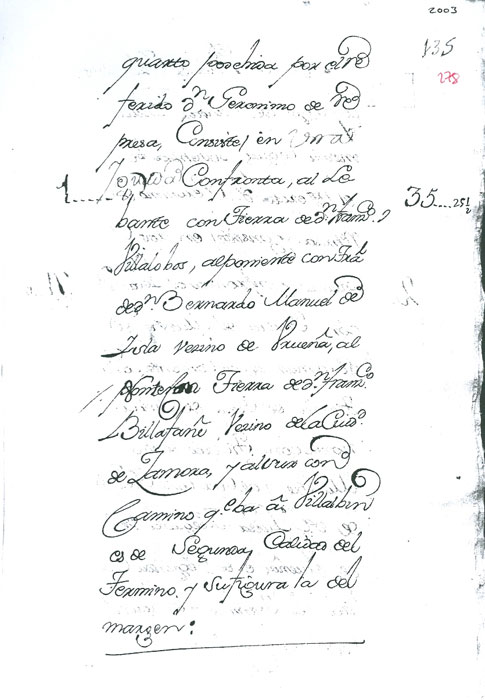 2003
135
278
quarto posehida por el Re
ferido Dn Geronimo de Re
presa, Consiste en
1 Confronta, al Le
35.... 25 1/2
bante con Tierra de dn. Franco.
Villalobos, al poniente con Tra
de dn. Bernardo Manuel de
Isla Vezino de Prueña, al
Norte Tierra de dn. Franco.
Billafañe Vezino de la Ciud.
de Zamora, y al sur con
Camino q. ba a Villalbin
es de Segunda Calidad del
Termino. y su figura la del
margen: